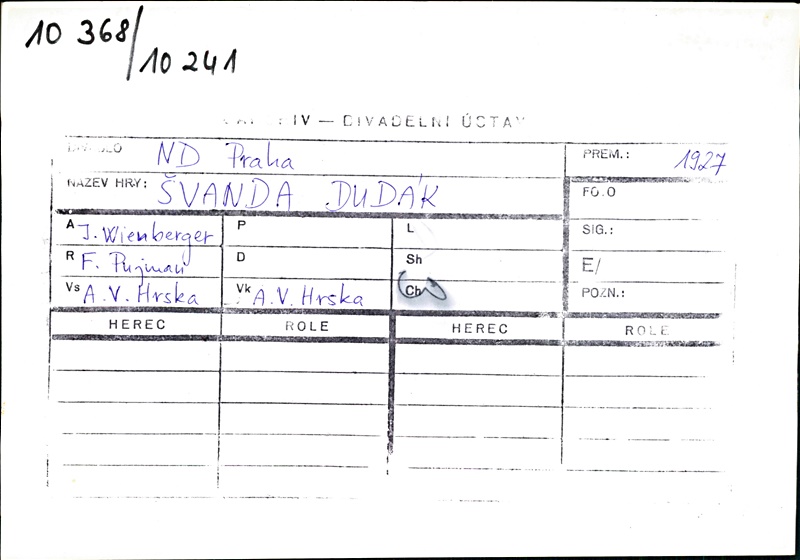 10 368/
10 241
IV — DIVADELNÍ ÚSTAV
ND Praha PREM.: 1927
NÁZEV HRY: ŠVANDA DUDÁK FO.O
A J. Wienberger P L SIG.:
R F. Pujman D Sh E/
Vs A.V. Hrska Vk A.V. Hrska Ch POZN.:
HEREC ROLE HEREC ROLE